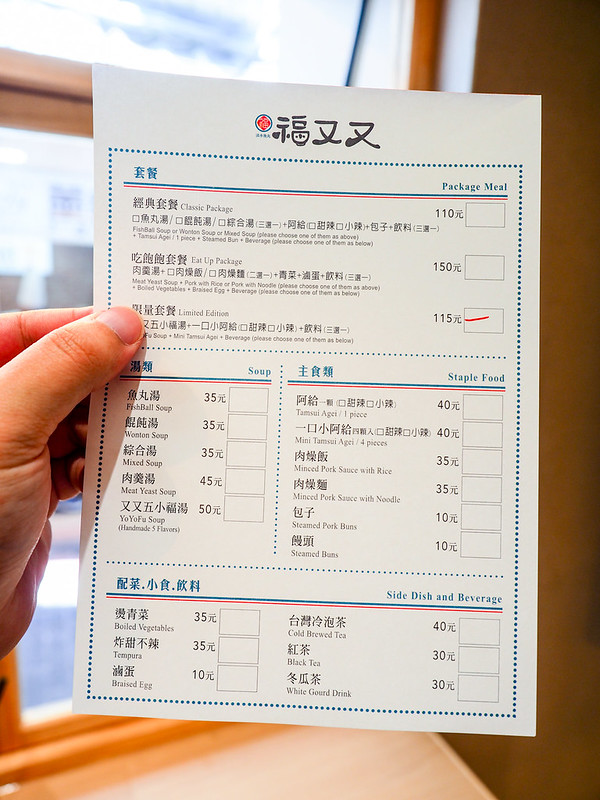 福又又
套餐
Package Meal
經典套餐 Classic Package
110元
□魚丸湯/□餛飩湯/□綜合湯(三選一)+阿給(□甜辣□小辣)+包子+飲料(三選一)
FishBall Soup or Wonton Soup or Mixed Soup (please choose one of them as above)
+ Tamsui Agei / 1 piece + Steamed Bun + Beverage (please choose one of them as below)
吃飽飽套餐 Eat Up Package
150元
肉羹湯+□肉燥飯/□肉燥麵(二選一)+青菜+滷蛋+飲料(三選一)
Meat Yeast Soup + Pork with Rice or Pork with Noodle (please choose one of them as above)
+ Boiled Vegetables + Braised Egg + Beverage (please choose one of them as below)
限量套餐 Limited Edition
115元
又五小福湯+一口小阿給(□甜辣□小辣)+飲料(三選一)
Fu Soup + Mini Tamsui Agei + Beverage (please choose one of them as below)
湯類
Soup
魚丸湯 35元
FishBall Soup
餛飩湯 35元
Wonton Soup
綜合湯 35元
Mixed Soup
肉羹湯 45元
Meat Yeast Soup
又又五小福湯 50元
YoYoFu Soup
(Handmade 5 Flavors)
主食類
Staple Food
阿給一顆(□甜辣□小辣) 40元
Tamsui Agei / 1 piece
一口小阿給四顆入(□甜辣□小辣) 40元
Mini Tamsui Agei / 4 pieces
肉燥飯 35元
Minced Pork Sauce with Rice
肉燥麵 35元
Minced Pork Sauce with Noodle
包子 10元
Steamed Pork Buns
饅頭 10元
Steamed Buns
配菜.小食.飲料
Side Dish and Beverage
燙青菜 35元
Boiled Vegetables
炸甜不辣 35元
Tempura
滷蛋 10元
Braised Egg
台灣冷泡茶 40元
Cold Brewed Tea
紅茶 30元
Black Tea
冬瓜茶 30元
White Gourd Drink